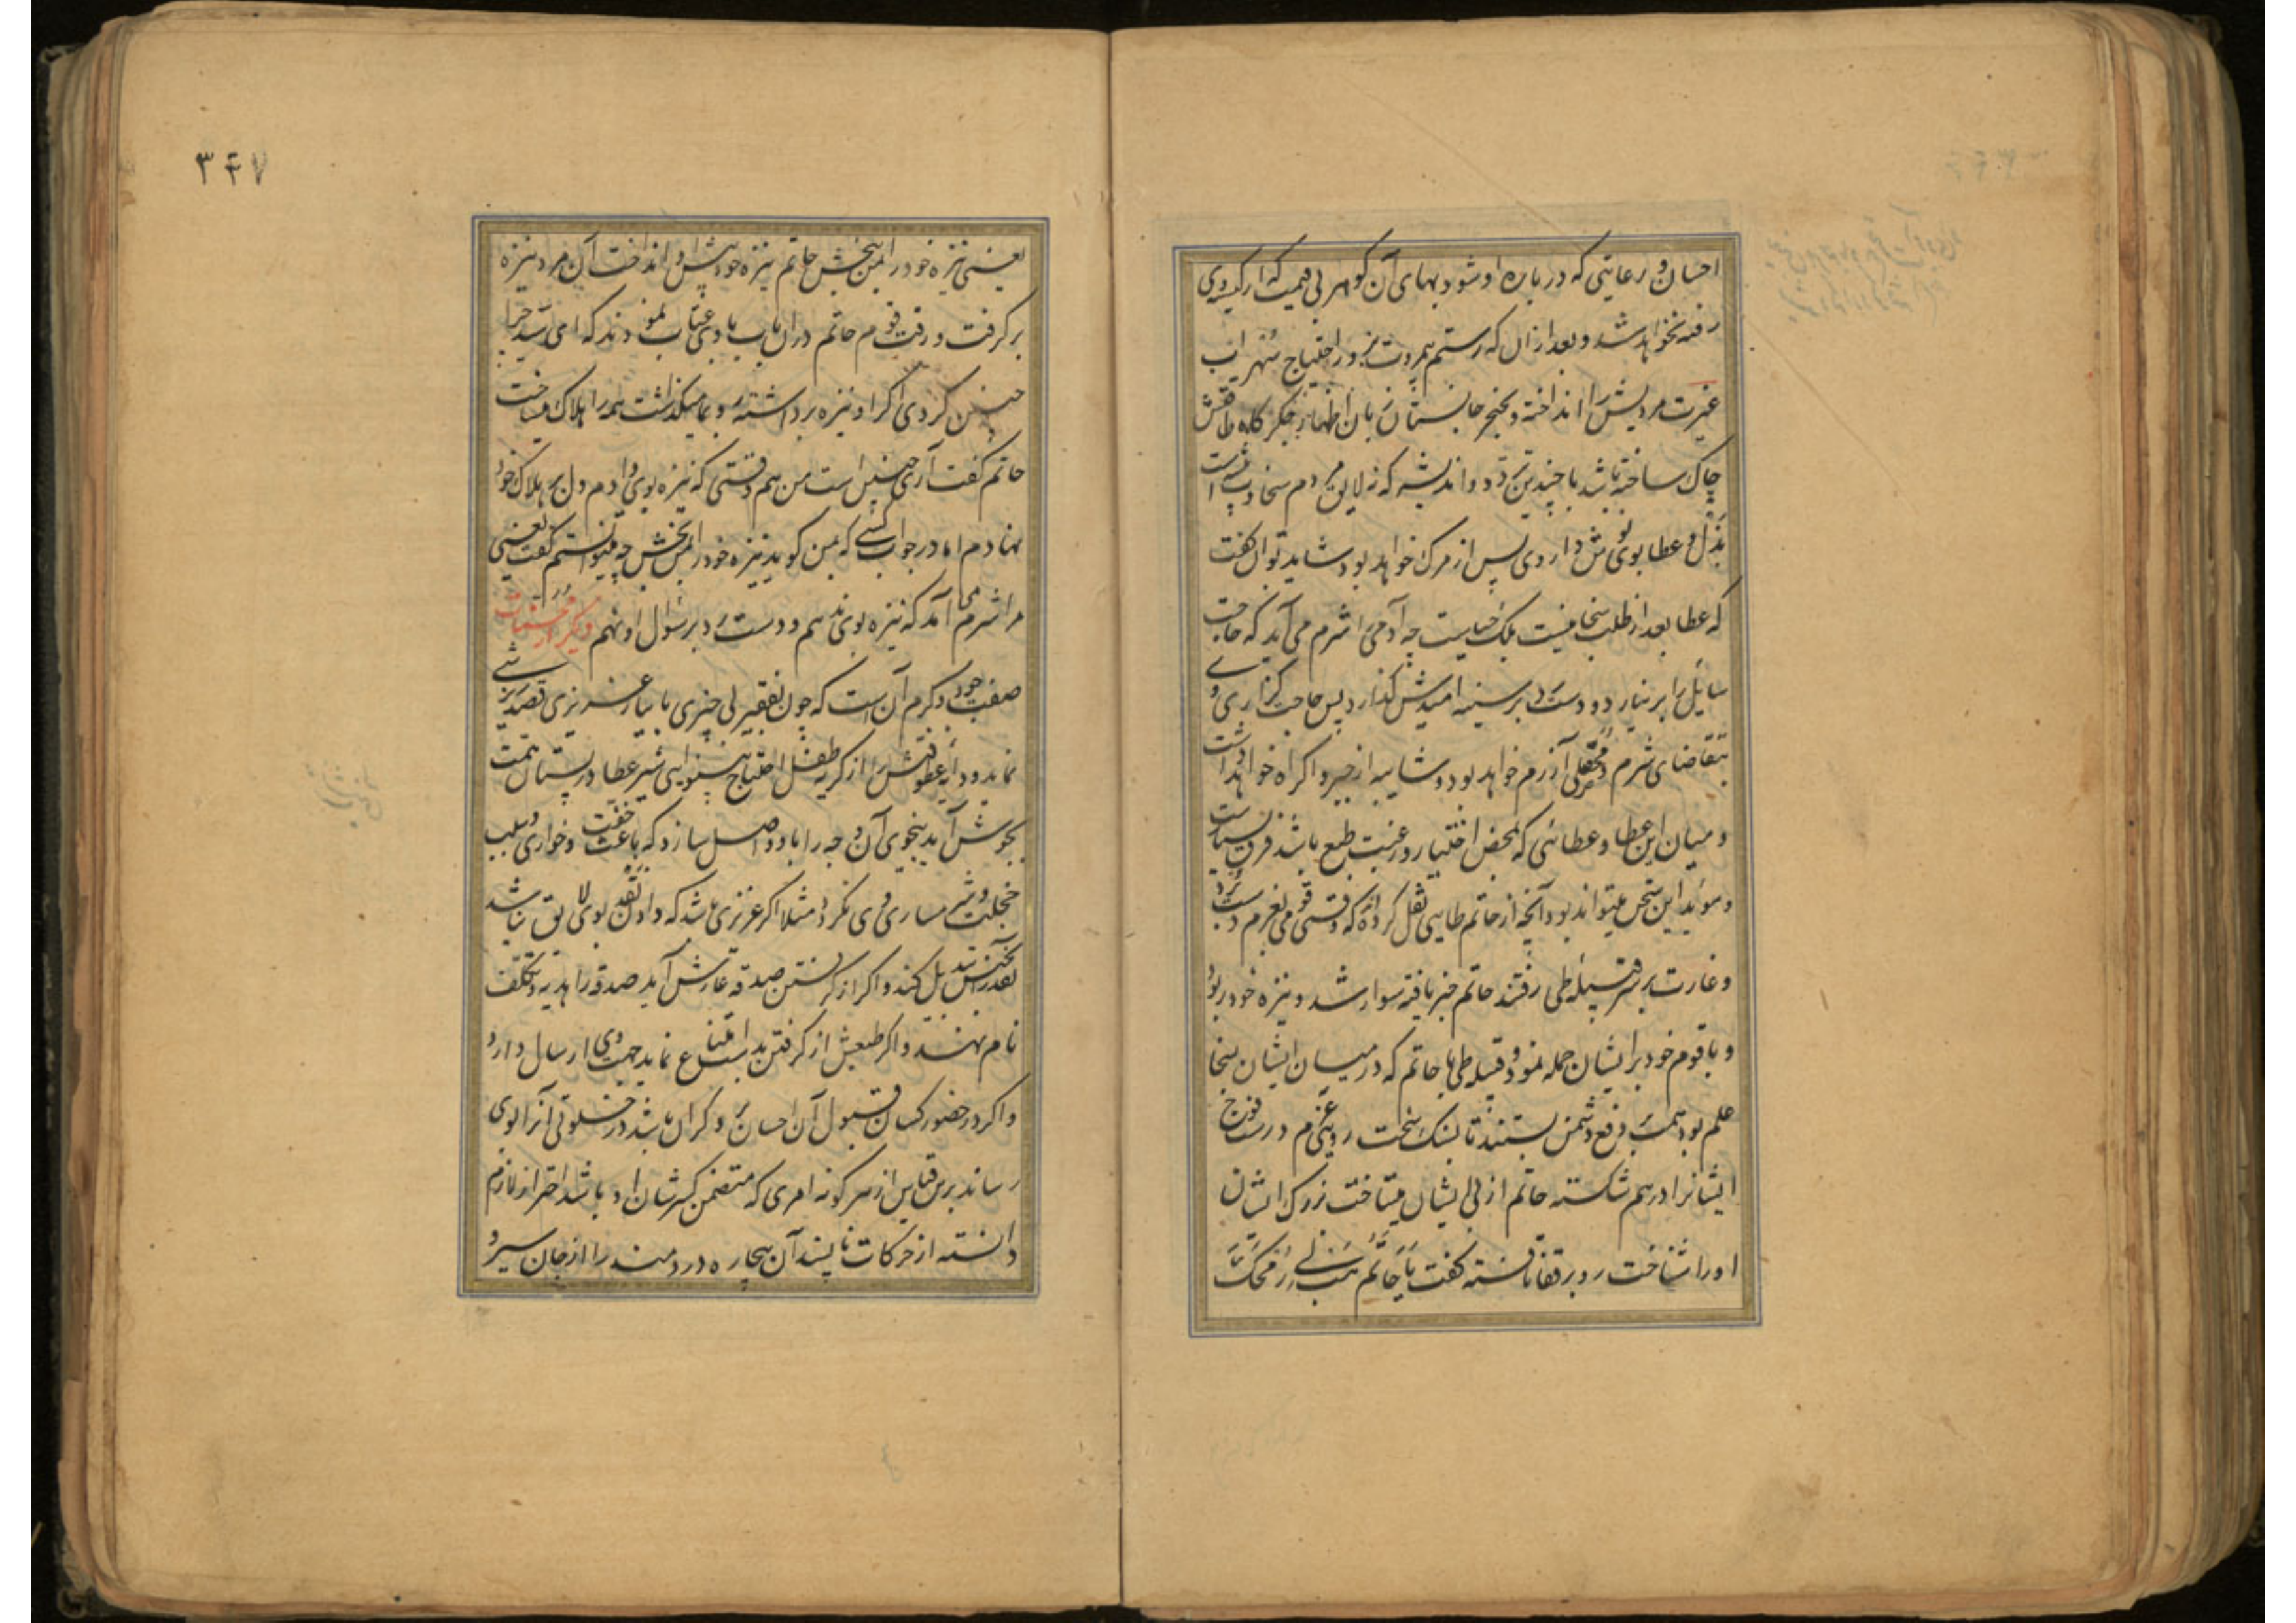 احسان و رعایتی که در باره او شود بهای آن کوهر بی قیمت که از کیسه وی
رفته نخواهد شد و بعد از ان که رستم مروت بزور احتیاج سهراب
غیرت مردیش را انداخته و بخنجر جانستان زبان اظهار جکر کاه طاقتش
چاک ساخته باشد با چندین تردد و اندیشه که نه لایق مردم سخاوت پیشه است
بذل و عطا بوی نوش داروی پس از مرک خواهد بود شاید توان کفت
که عطا بعد از طلب سخا نیست بلکه حیاست چه آدمی را شرم می آید که حاجت
سایل را بر نیارد و دست رد بر سینه امیدش کذارد پس حاجت کزاری وی
بتقاضای شرم و آزرم خواهد بود و شایبه از جبر و اکراه خواهد داشت
و میان این عطا و عطائی که بمحض اختیار و رغبت طبع باشد فرق بسیارست
و موید این سخن میتواند بود آنچه از حاتم طایی نقل کرده اند که وقتی قومی بعزم دست برد
و غارت بر سر قبیله طی رفتند حاتم خبر یافته سوار شد و نیزه خود ربود
و با قوم خود بر ایشان حمله نمود و قبیله طی با حاتم که در میان ایشان بسخا
علم بود همت بر دفع دشمن بستند تا بسنک سخت رویی عزم درست فوج
ایشانرا درهم شکسته حاتم از پی ایشان میتاخت بزرک ایشان
او را شناخت رو بر قفا تافته کفت یا حاتم هب لی رمحک
۳۴۷
یعنی نیزه خود را بمن بخش حاتم نیزه خود پیش او انداخت آن مرد نیزه
بر کرفت و رفت قوم حاتم در ان باب با وی عتاب نمودند که ای سید چرا
چنین کردی اکر او نیزه برداشته رو بما میکذاشت همه را هلاک میساخت
حاتم کفت آری چنین است من هم وقتی که نیزه بوی دادم دل بر هلاک خود
نهادم اما در جواب کسی که بمن کوید نیزه خود را بمن بخش چه میتوانستم کفت یعنی
مرا شرم می آمد که نیزه بوی ندهم و دست رد بر سئوال او نهم دیکر از مستحبات
صفت جود و کرم آن است که چون بفقیر بی چیزی یا بیازار عزیزی قصد ریزشی
نماید و دایه عطوفتش را از کریه طفل احتیاج بینوایی شیر عطا در پستان همت
بجوش آید بنحوی آن وجه را باو واصل سازد که باعث خفت و خواری و سبب
خجلت و شرمساری وی نکردد مثلا اکر عزیزی باشد که دادن نقد بوی لایق نباشد
نقد را بجنس تبدیل کند و اکر از کرفتن صدقه عارش آید صدقه را هدیه و تکلف
نام نهند و اکر طبعش از کرفتن بدست امتناع نماید جهت وی ارسال دارد
و اکر در حضور کسان قبول آن احسان بر و کران باشد در خلوتی آنرا بوی
رساند برین قیاس از هر کونه امری که متضمن کسر شان او باشد احتراز لازم
دانسته از حرکات ناپسند آن بیچاره دردمند را از جان سیر و